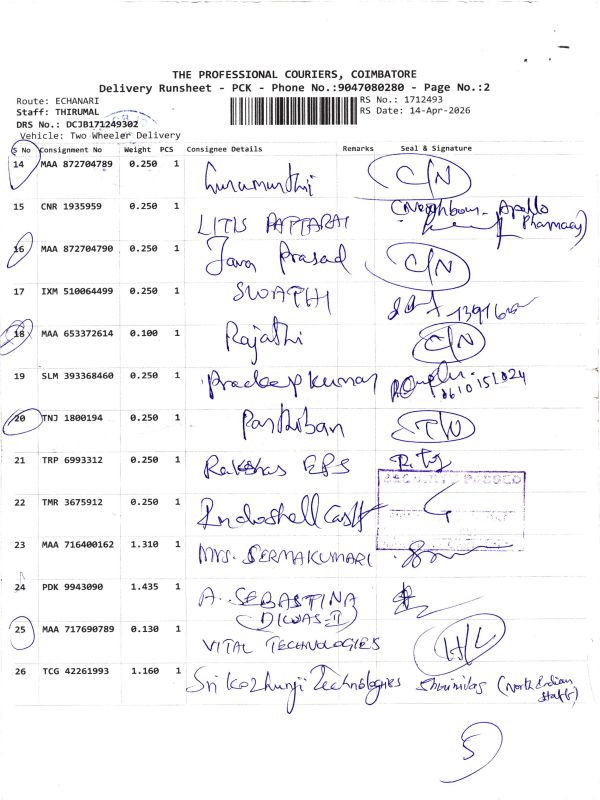 THE PROFESSIONAL COURIERS, COIMBATORE
Delivery Runsheet - PCK - Phone No.:9047080280 - Page No.:2
Route: ECHANARI
RS No.: 1712493
Staff: THIRUMAL
RS Date: 14-Apr-2026
DRS No.: DCJB171249302
Vehicle: Two Wheeler Delivery
S No Consignment No Weight PCS Consignee Details Remarks Seal & Signature
14 MAA 872704789 0.250 1 Gurumurthi C/N
15 CNR 1935959 0.250 1 LITIS PATTARAI (Neighbour- Apollo Pharmacy)
16 MAA 872704790 0.250 1 Prasad C/N
17 IXM 510064499 0.250 1 SWATHI
18 MAA 653372614 0.100 1 Rajathi C/N
19 SLM 393368460 0.250 1 Pradeepkumar
20 TNJ 1800194 0.250 1 Parthiban
21 TRP 6993312 0.250 1 Rakshas EPS
22 TMR 3675912 0.250 1 Indoshell Cast
23 MAA 716400162 1.310 1 MRS. SERMAKUMARI
24 PDK 9943090 1.435 1 A. SEBASTINA
DIWAS-II
25 MAA 717690789 0.130 1 VITAL TECHNOLOGIES
26 TCG 42261993 1.160 1 Sri Kozhunji Technologies (North Indian Staffs)
5